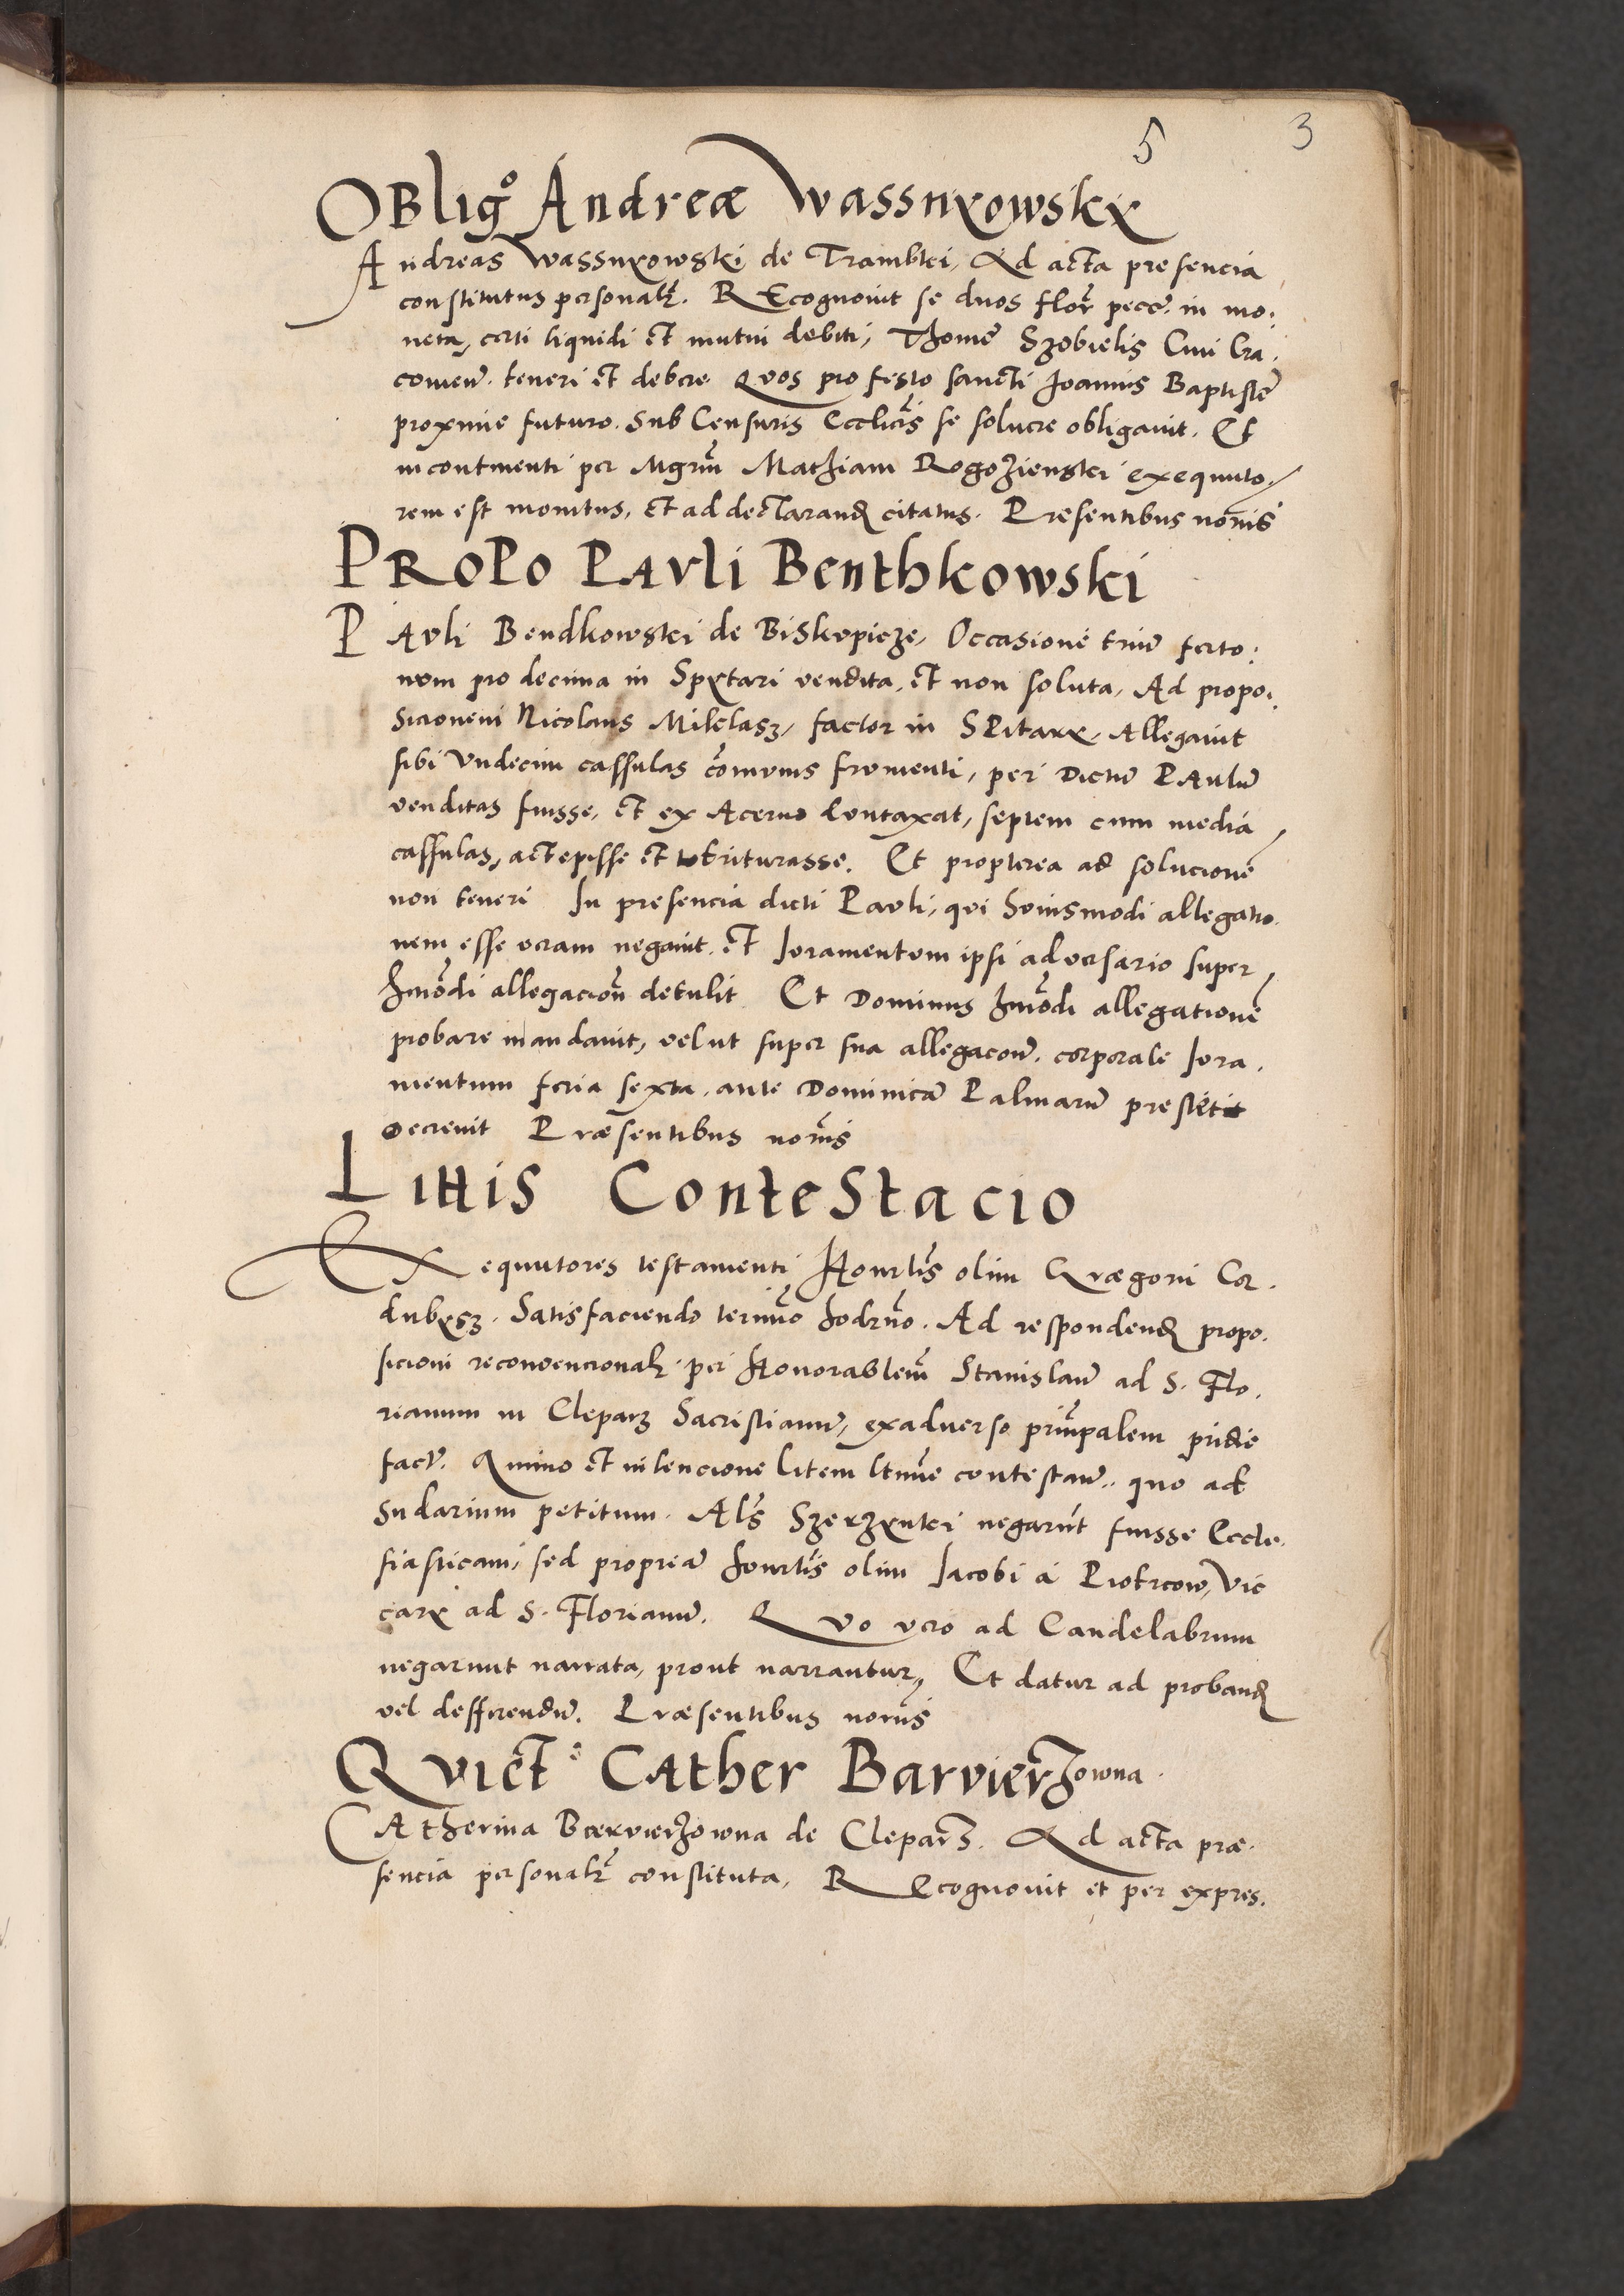 5 3
OBligº Andreæ Wassnyowsky
Andreas Wassnyowski de Trambki, Ad acta presencia
constitutus personalr. REcognovit se duos flor pecce in mo:
neta, certi liquidi et mutui debiti, Thome Szobielis Civi Cra.
covien. teneri et debere Quos pro festo sancti Joannis Baptiste
proxime futuro. Sub Censuris Ecclicis se solvere obligavit. Et
incontinenti per Mgrm Mathiam Rogozienski exequuto/
rem est monitus, et ad declarand citatus. Presentibus noriis
PROPO PAvli Benthkowski
PAvli Bendkowski de Biskvpicze, Occasione triu ferto:
nvm pro decima in Spytari vendita, et non soluta, Ad propo:
sicionem Nicolaus Miklasz, factor in SPitary, Allegavit
sibi Vndecim cassulas comvnis frvmenti, per Dictu PAulu
venditas fuisse, et ex Acervo dontaxat, septem cum media
cassulas, accepisse et triturasse. Et propterea ad solucione
non teneri In presencia dicti Pavli, qvi hvivsmodi allegatio.
nem esse veram negavit. et Jvramentvm ipsi adversario super
hmodi allegacion detulit Et Dominus hmodi allegatione
probare mandavit, velut super sua allegacone. corporale Jvra.
mentum feria sexta. ante Dominica Palmaru prestet
Decrevit Præsentibus noriis
Littis ConteStacio
Exequutores testamenti Honrlis olim Grægorii Cor.
dubysz. Satisfaciendo termno hodrno. Ad respondend propo.
sicioni reconvencionalr. per Honorablem Stanislau ad S. Flo.
rianum in Cleparz Sacristianu, exadverso prinpalem pridie
fact. Animo et intencione Litem ltime contestan.. quo ad
Sudarium petitum. Als Szerzynki negarut fuisse Eccle.
siasticam, sed propria honrlis olim Jacobi a Piotrcow, Vic
cary ad S. Florianu. Qvo vero ad Candelabrum
negarunt narrata, prout narrantur, Et datur ad proband
vel defferendu. Præsentibus noriis
Qvict CAther Barvierzowna.
CAtherina Barvierzowna de Cleparz. Ad acta præ.
sencia personalr constituta, REcognovit et per expres.